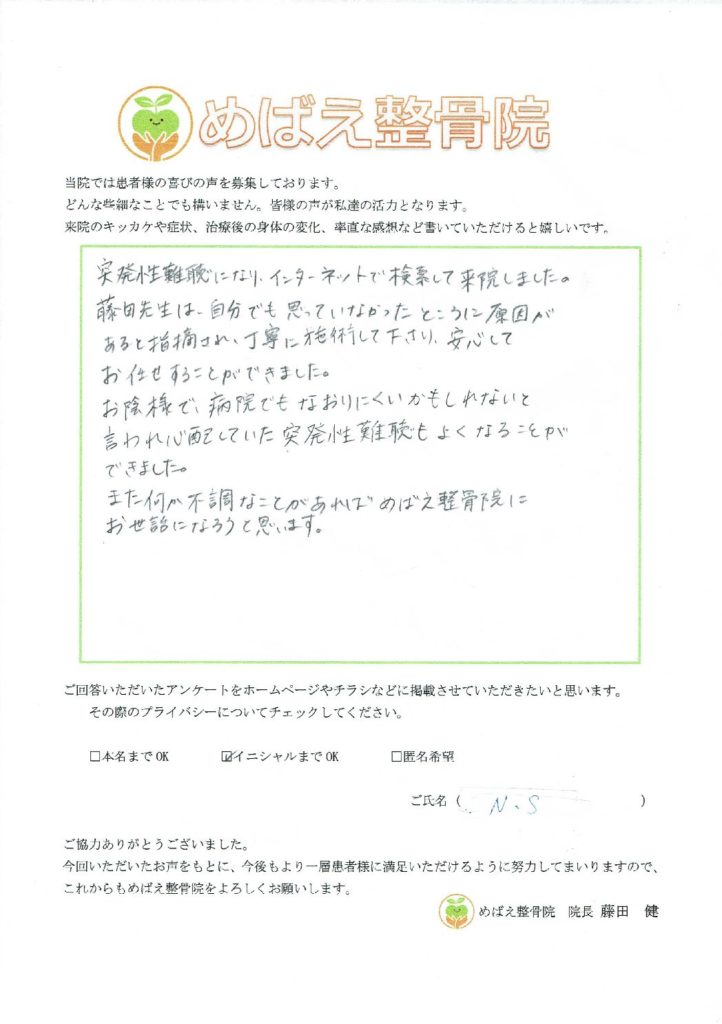 めばえ整骨院
当院では患者様の喜びの声を募集しております。
どんな些細なことでも構いません。皆様の声が私達の活力となります。
来院のキッカケや症状、治療後の身体の変化、率直な感想など書いていただけると嬉しいです。
突発性難聴になり、インターネットで検索して来院しました。
藤田先生は、自分でも思っていなかったところに原因が
あると指摘され、丁寧に施術して下さり、安心して
お任せすることができました。
お陰様で、病院でもなおりにくいかもしれないと
言われ心配していた突発性難聴もよくなることが
できました。
また何か不調なことがあればめばえ整骨院に
お世話になろうと思います。
ご回答いただいたアンケートをホームページやチラシなどに掲載させていただきたいと思います。
その際のプライバシーについてチェックしてください。
□本名までOK ☑イニシャルまでOK □匿名希望
ご氏名( N.S )
ご協力ありがとうございました。
今回いただいたお声をもとに、今後もより一層患者様に満足いただけるように努力してまいりますので、
これからもめばえ整骨院をよろしくお願いします。
めばえ整骨院 院長 藤田 健